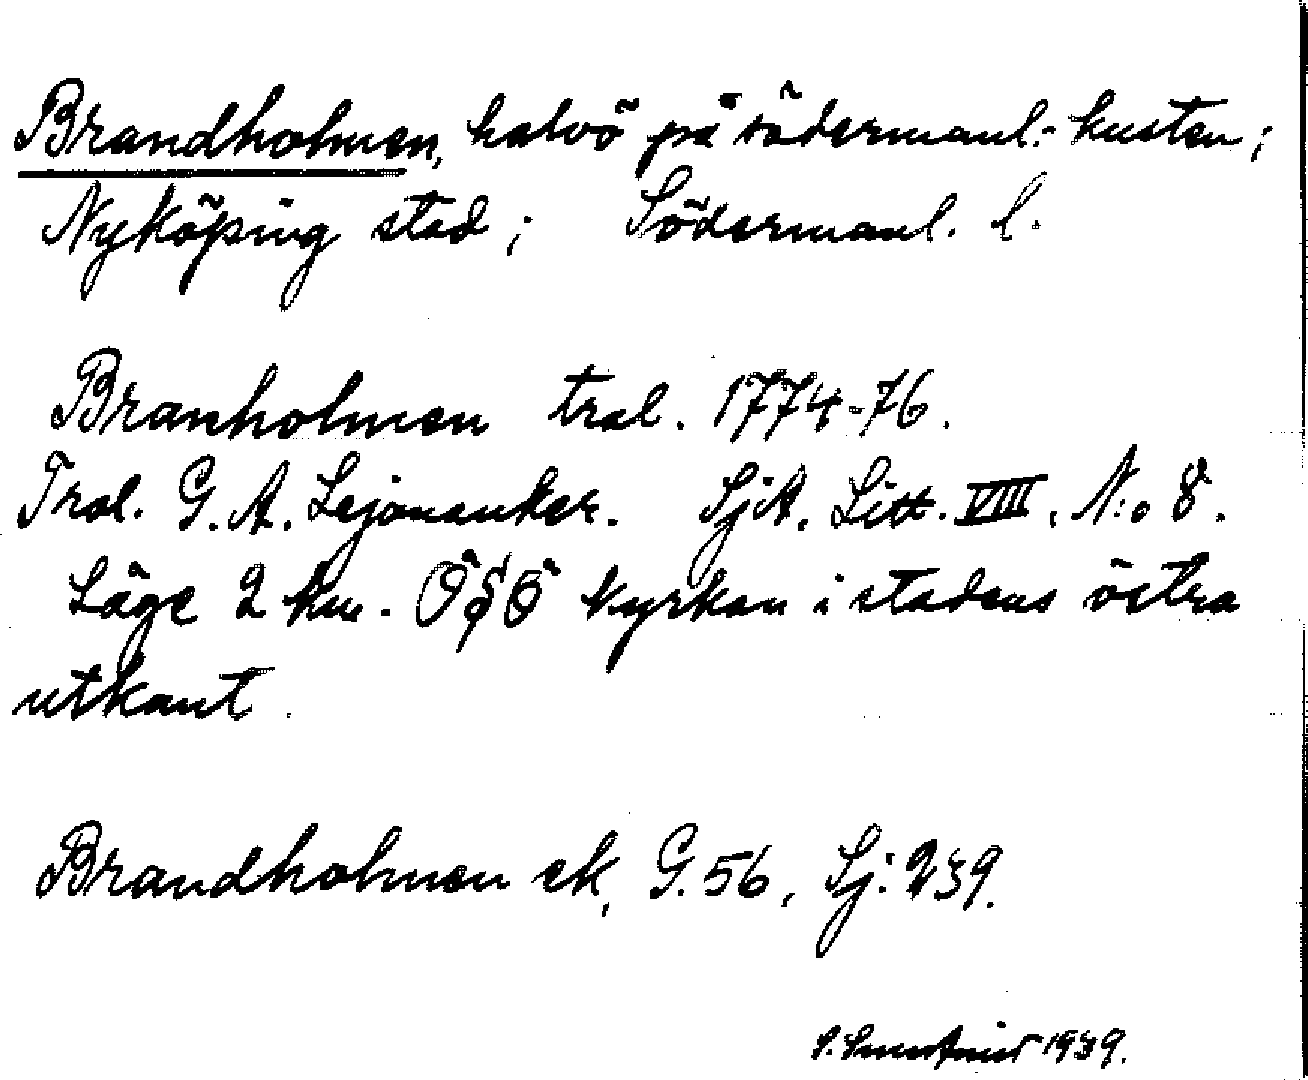 Brandholmen, halvö på södermanl.-kusten;
Nyköping stad; Södermanl. l.
Branholmen tral. 1774-76.
Tral. G. A. Lejonanker. SjA. Litt. VIII. N:o 8.
Läge 2 km. ÖSÖ kyrkan i stadens östra
utkant.
Brandholmen ek, G. 56, Sj: 239.
1939.